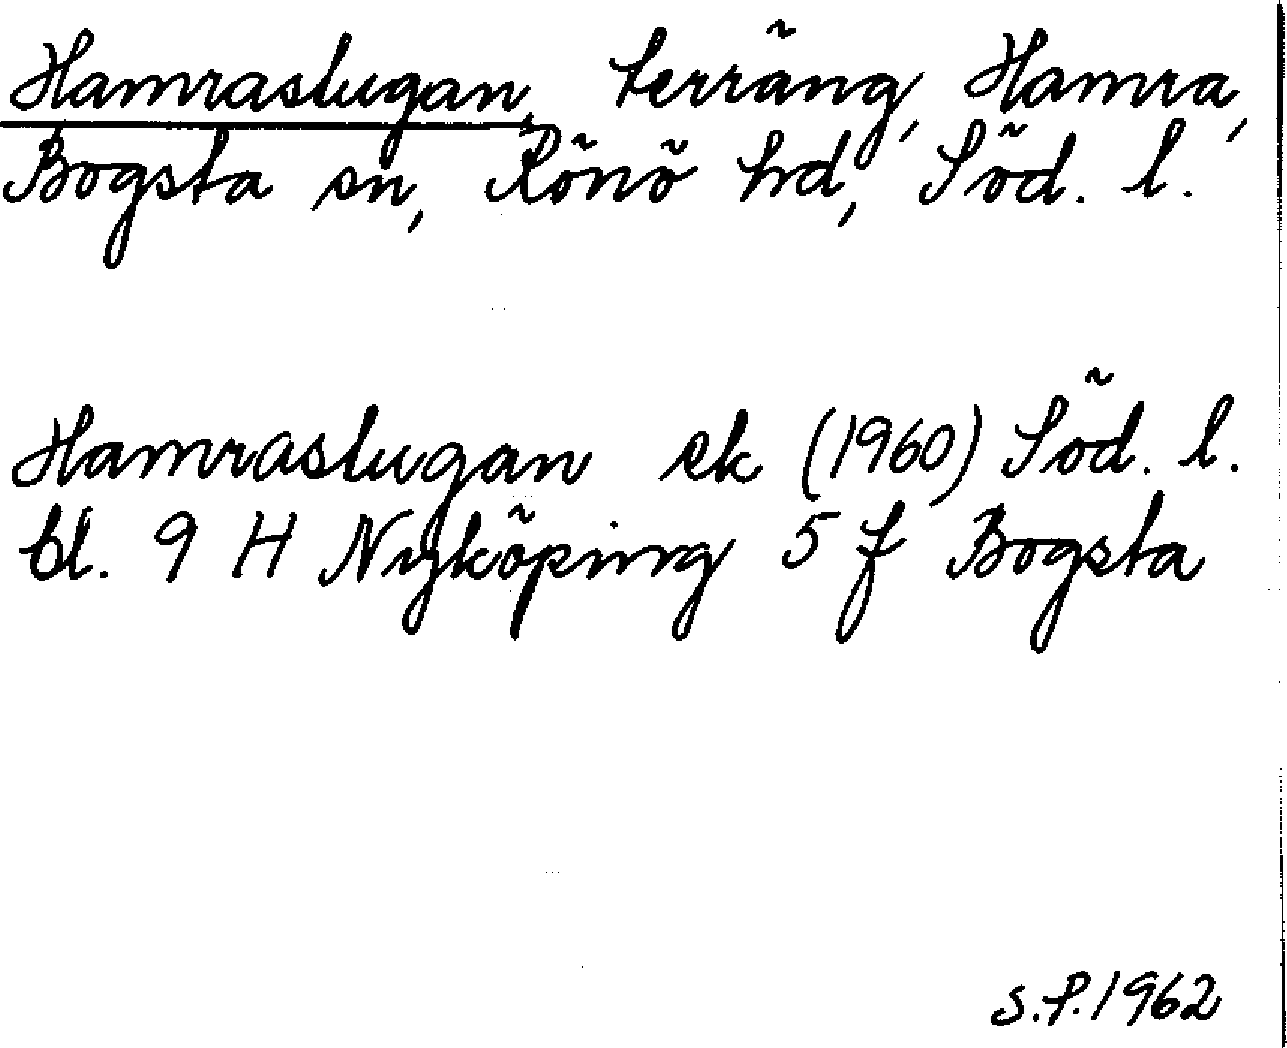 Hamrastugan, terräng, Hamra,
Bogsta sn, Rönö hd, Söd. l.
Hamrastugan ek (1960) Söd. l.
bl. 9 H Nyköping 5 f Bogsta
S.P. 1962